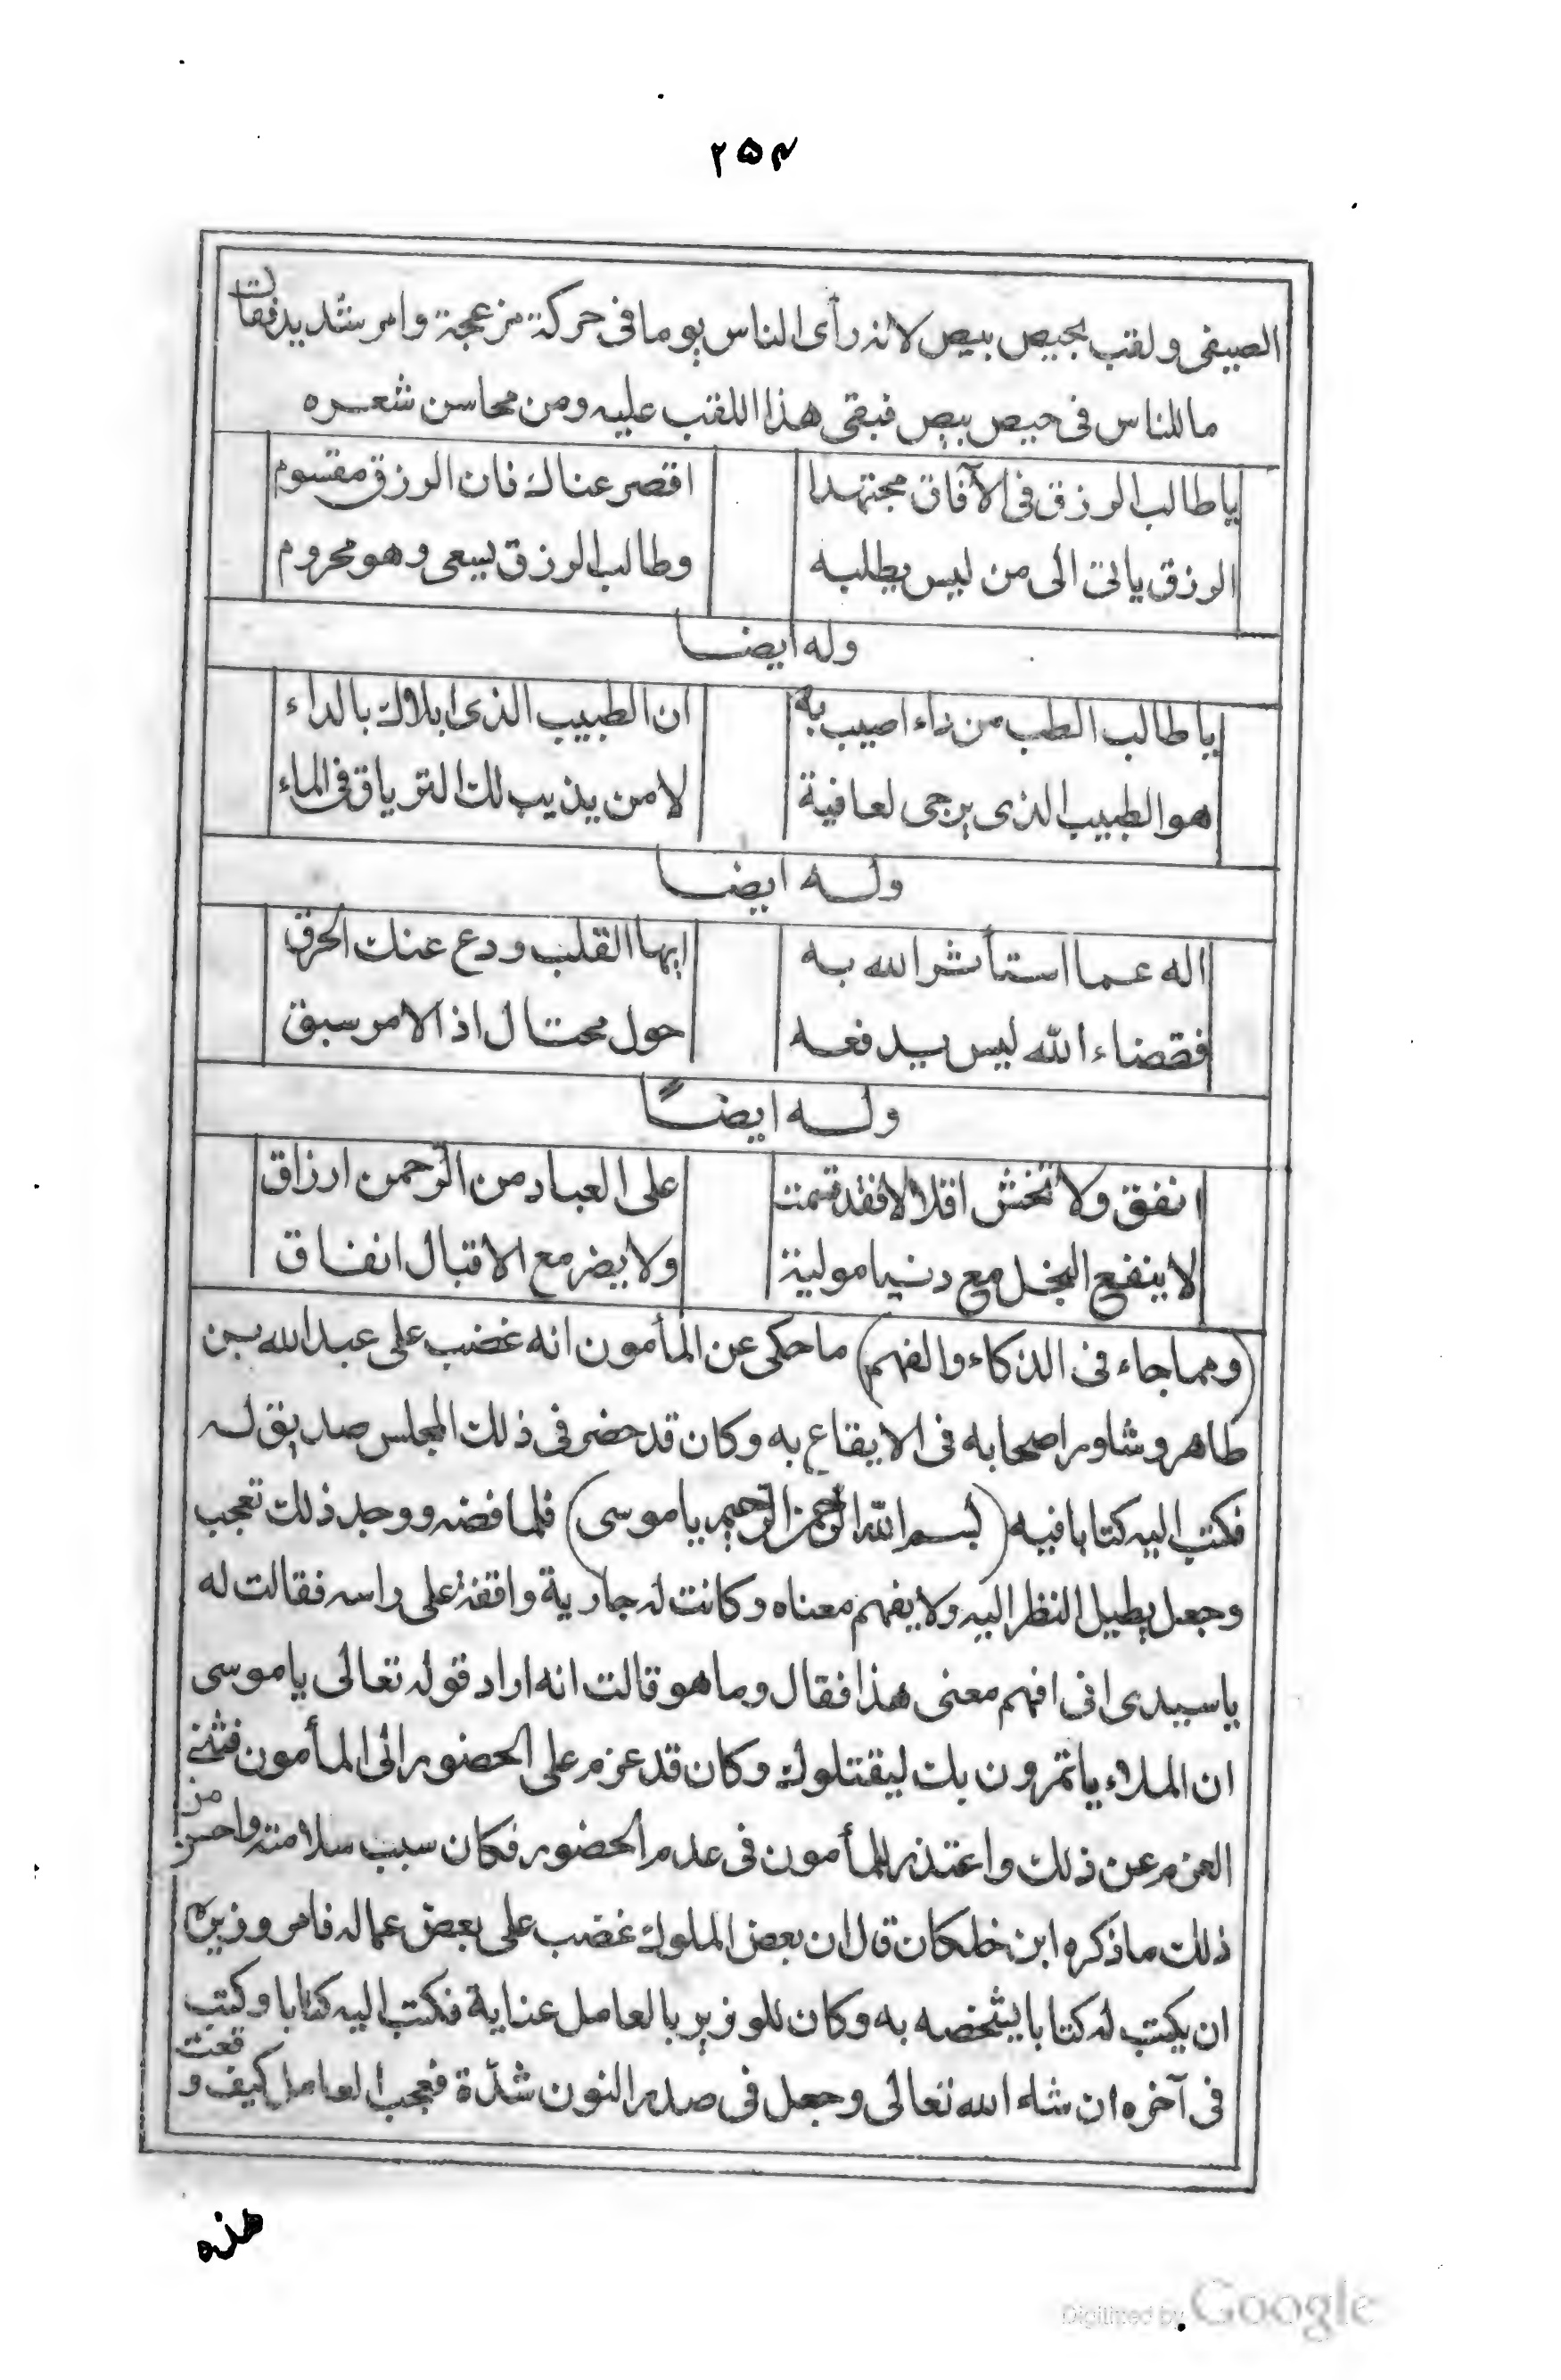 ٢٥٤
الصيفى ولقب بحيص بيص لانه رأى الناس يوما فى حركة مزعجة وامر شديد فقال
ما للناس فى حيص بيص فبقى هذا اللقب عليه ومن محاسن شعره
يا طالب الرزق فى الآفاق مجتهدا اقصر عناك فان الرزق مقسوم
الرزق ياتى الى من ليس يطلبه وطالب الرزق يسعى وهو محروم
وله ايضا
يا طالب الطب من داء اصيب به ان الطبيب الذى ابلاك بالداء
هو الطبيب الذى يرجى لعافية لا من يذيب لك الترياق فى الماء
وله ايضا
اله عما استأثر الله به ايها القلب ودع عنك الحرق
فقضاء الله ليس يدفعه حول محتال اذ الامر سبق
وله ايضًا
انفق ولا تخش اقلالا فقد قسمت على العباد من الرّحمن ارزاق
لا ينفع البخل مع دنيا مولية ولا يضر مع الاقبال انفاق
(ومما جاء فى الذكاء والفهم) ما حكى عن المأمون انه غضب على عبد الله بن
طاهر وشاور اصحابه فى الايقاع به وكان قد حضر فى ذلك المجلس صديق له
فكتب اليه كتابا فيه (بسم الله الرّحمن الرّحيم يا موسى) فلما فضه ووجد ذلك تعجب
وجعل يطيل النظر اليه ولا يفهم معناه وكانت له جارية واقفة على راسه فقالت له
يا سيدى انى افهم معنى هذا فقال وما هو قالت انه اراد قوله تعالى يا موسى
ان الملاء ياتمرون بك ليقتلوك وكان قد عزم على الحضور الى المأمون فثنى
العزم عن ذلك واعتذر للمأمون فى عدم الحضور فكان سبب سلامته واحسن من
ذلك ما ذكره ابن خلكان قال ان بعض الملوك غضب على بعض عماله فامر وزيره
ان يكتب له كتابا يشخصه به وكان للوزير بالعامل عناية فكتب اليه كتابا وكتب
فى آخره ان شاء الله تعالى وجعل فى صدر النون شدّة فعجب العامل كيف وقعت
هذه
Digitized by Google